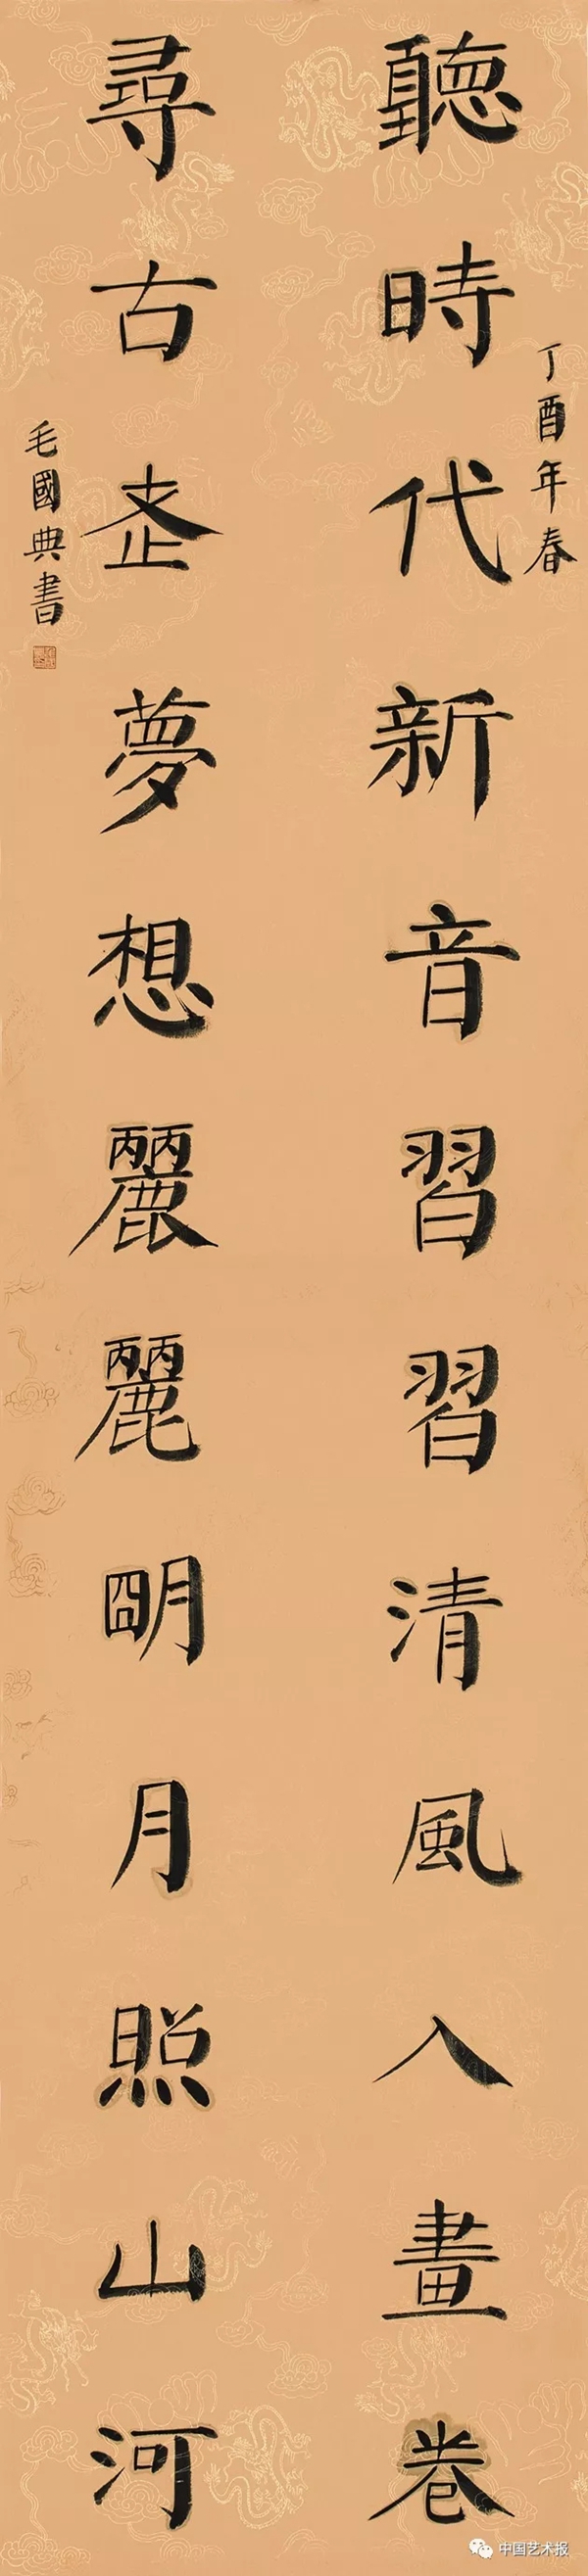 丁酉年春
聽時代新音習習清風入畫卷
尋古老夢想麗麗朙月照山河
毛國典書
中国艺术报